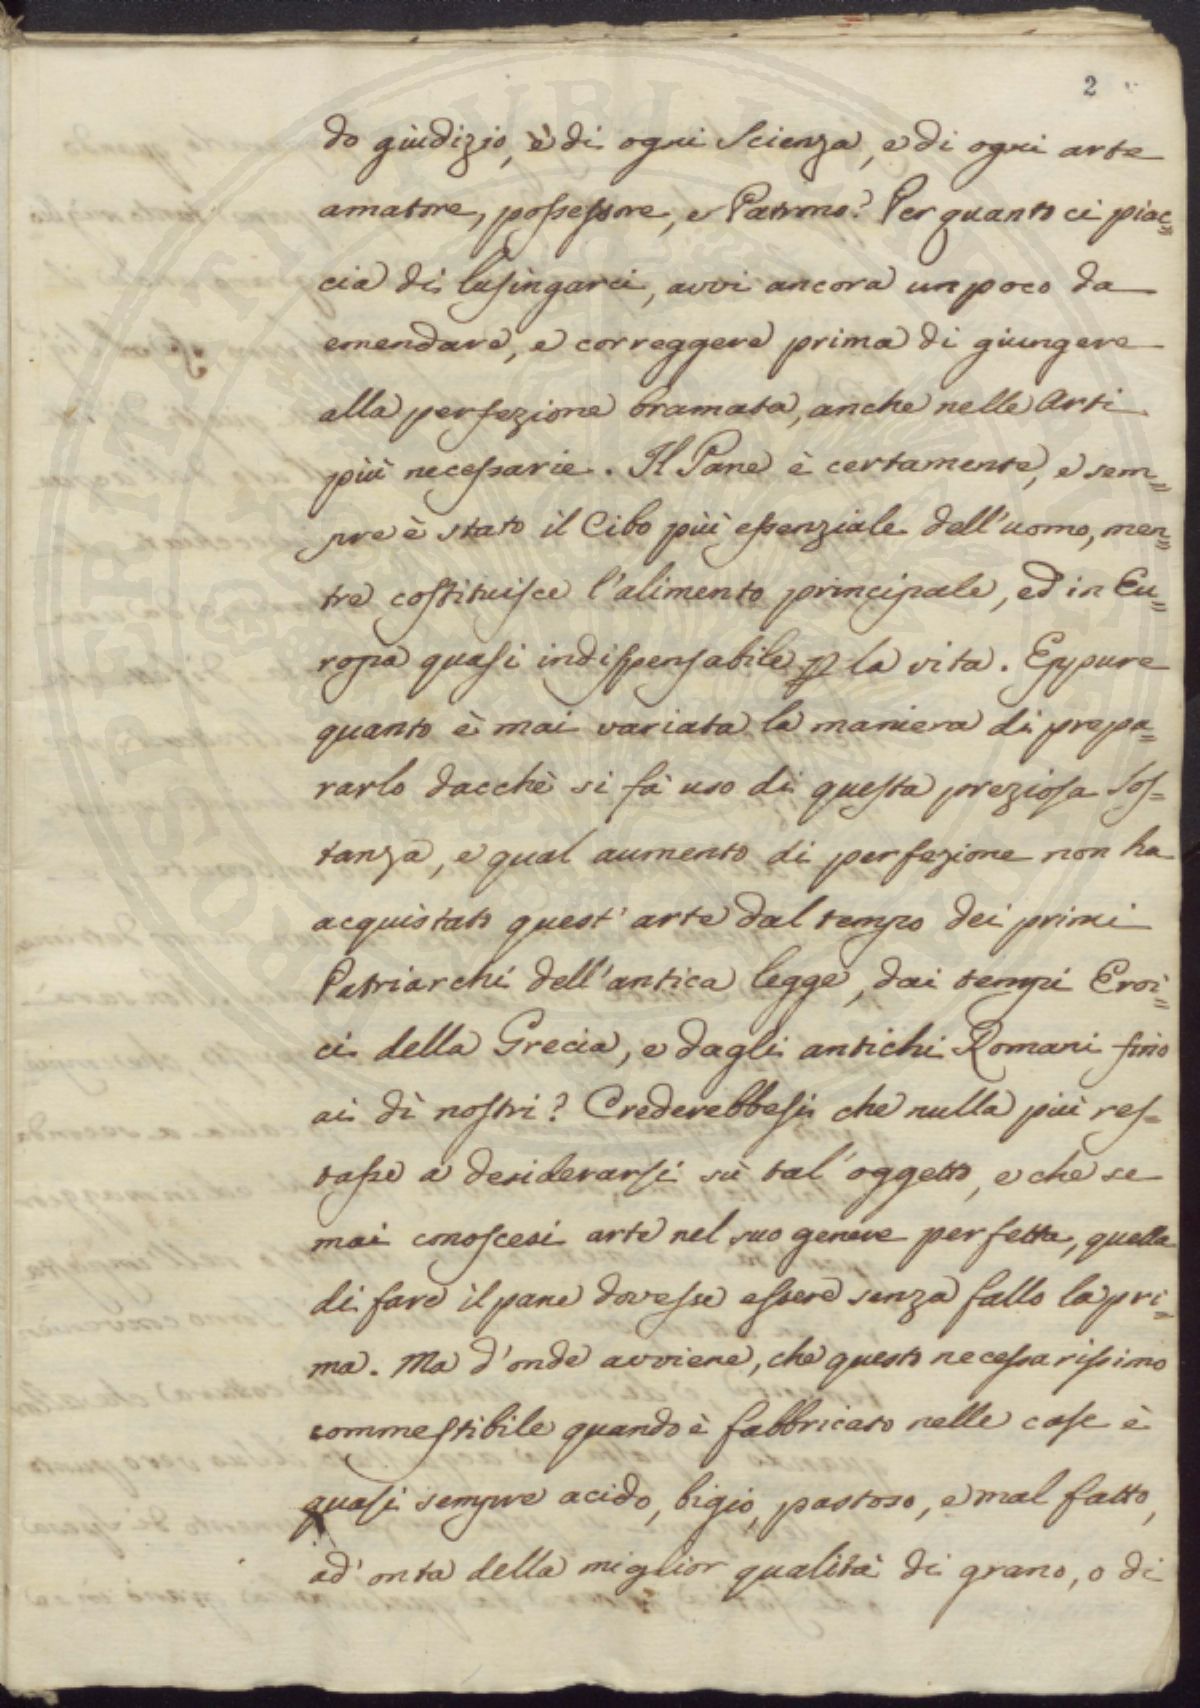 2
do giudizio, è di ogni Scienza, e di ogni arte
amatore, possessore, e Patrono? Per quanto ci piac=
cia di lusingarci, avvi ancora un poco da
emendare, e correggere prima di giungere
alla perfezione bramata, anche nelle Arti
più necessarie. Il Pane è certamente, e sem=
pre è stato il Cibo più essenziale dell'uomo, men=
tre costituisce l'alimento principale, ed in Eu=
ropa quasi indispensabile p la vita. Eppure
quanto è mai variata la maniera di prepa=
rarlo dacchè si fà uso di questa preziosa Sos=
tanza, e qual aumento di perfezione non ha
acquistato quest'arte dal tempo dei primi
Patriarchi dell'antica legge, dai tempi Eroi=
ci della Grecia, e dagli antichi Romani fino
ai dì nostri? Crederebbesi che nulla più res=
tasse a desiderarsi sù tal'oggetto, e che se
mai conoscesi arte nel suo genere perfetta, quella
di fare il pane dovesse essere senza fallo la pri=
ma. Ma d'onde avviene, che questo necessarissimo
commestibile quando è fabbricato nelle case è
quasi sempre acido, bigio, pastoso, e mal fatto,
ad'onta della miglior qualità di grano, o di